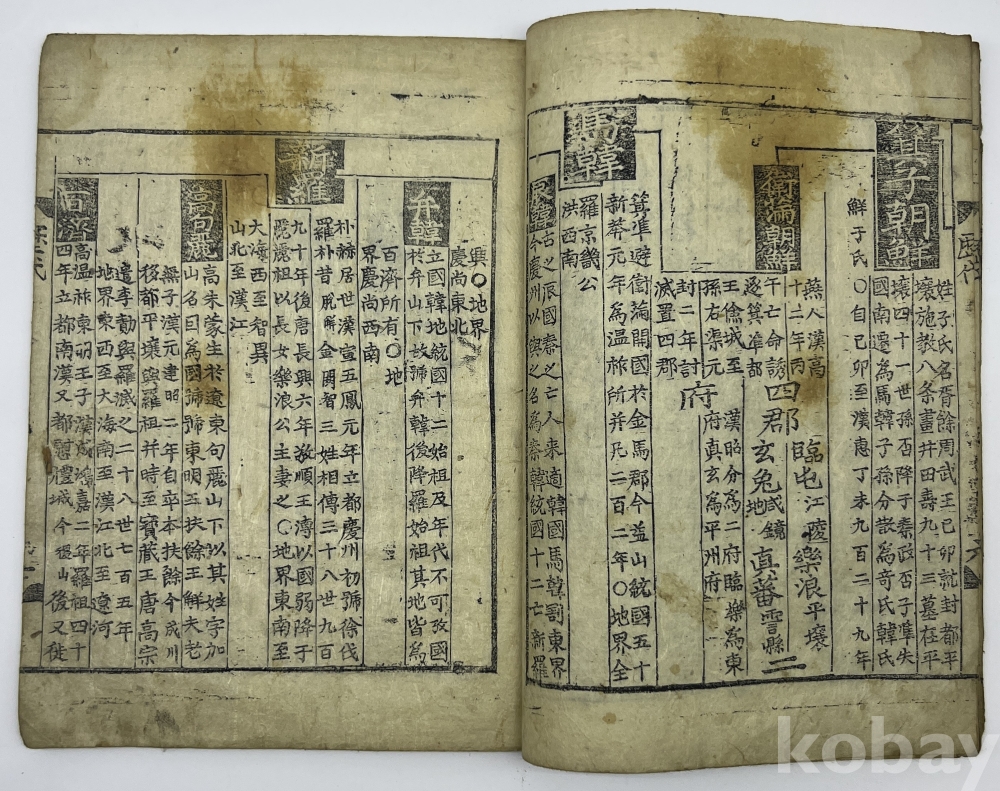 箕子朝鮮
姓子氏名胥餘周武王己卯就封都平
壤施教八條畫井田壽九十三墓在平
壤四十一世孫否降于秦政否子準失
國南還為馬韓子孫分散為奇氏韓氏
鮮于氏 〇自己卯至漢惠丁未九百二十九年
衛滿朝鮮
燕人漢高
十二年丙
午亡命誘
逐箕準都
王儉城至
孫右渠元
封二年討
滅置四郡
四郡 臨屯江陵 樂浪平壤
玄兔咸鏡地 真蕃雲縣
二
府
漢昭分為二府臨樂為東
府真玄為平州府
馬韓
箕準避衛滿開國於金馬郡今益山統國五十
新莽元年為溫祚所并凡二百二年〇地界全
羅京畿公
洪西南
辰韓
古之辰國秦之亡人來適韓國馬韓割東界
今慶州以與之名為秦韓統國十二亡新羅
興〇地界
慶尚東北
弁韓
立國韓地統國十二始祖及年代不可攷國
於弁山下故號弁韓後降羅始祖其地皆為
百濟所有〇地
界慶尚西南
新羅
朴赫居世漢宣五鳳元年立都慶州初號徐伐
羅朴昔脫解金閼智三姓相傳三十八世九百
九十年後唐長興六年敬順王溥以國弱降于
麗麗祖以長女樂浪公主妻之〇地界東南至
大海西至智異
山北至漢江
高句麗
高朱蒙生於遼東句麗山下以其姓字加
山名曰為國號號東明王扶餘王解夫老
無子漢元建昭二年自卒本扶餘今成川
移都平壤與羅祖并時至寶藏王唐高宗
遣李勣與羅滅之二十八世七百五年
地界東西至大海南至漢江北至遼河
百濟
高溫祚東明王子漢成鴻嘉二年羅祖四十
四年立都南漢又都慰禮城今稷山後又徙
歷代
kobay